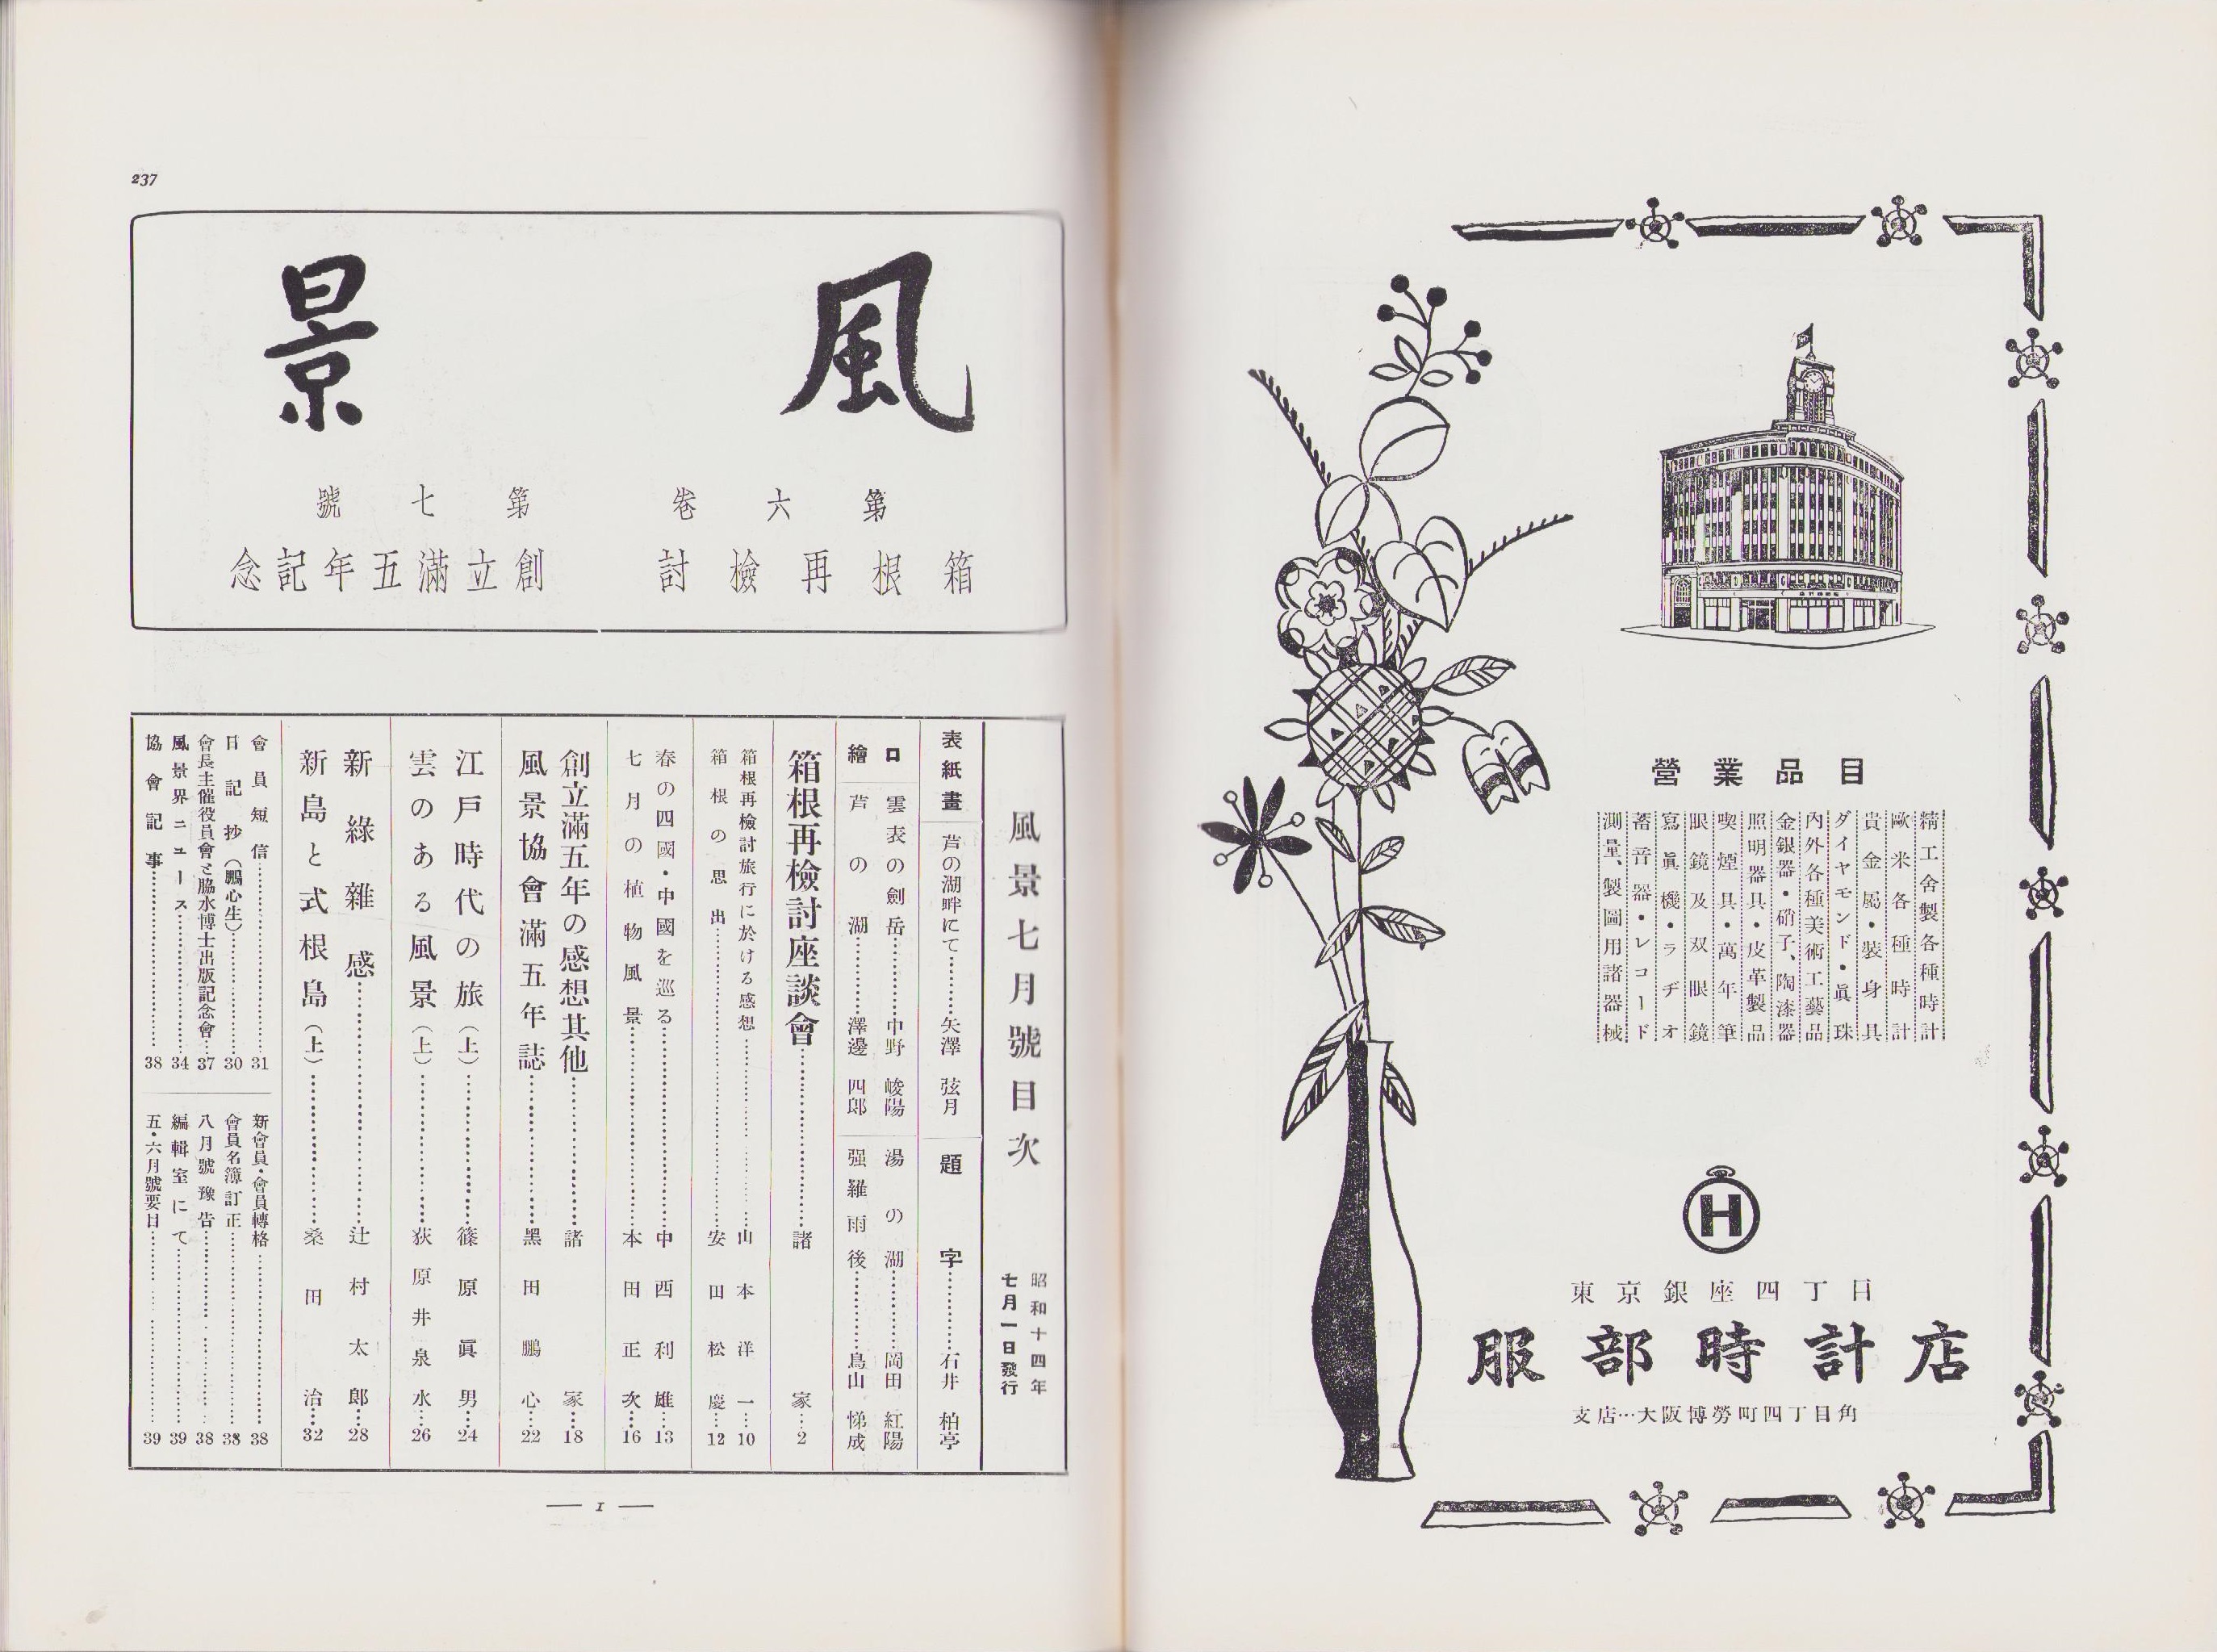 精工舍製各種時計
歐米各種時計
貴金屬・裝身具
ダイヤモンド・眞珠
內外各種美術工藝品
金銀器・硝子、陶漆器
照明器具・皮革製品
喫煙具・萬年筆
眼鏡及双眼鏡
寫眞機・ラヂオ
蓄音器・レコード
測量、製圖用諸器械
營業品目
H
東京銀座四丁目
服部時計店
支店…大阪博勞町四丁目角
237
風景
第六卷 第七號
箱根再檢討 創立滿五年記念
風景七月號目次
昭和十四年
七月一日發行
表紙畫 芦の湖畔にて…………矢澤弦月
題字…………石井柏亭
口繪
雲表の劍岳…………中野峻陽
芦の湖…………澤邊四郎
湯の湖…………岡田紅陽
强羅雨後…………鳥山悌成
箱根再檢討座談會…………諸家…2
箱根再檢討旅行に於ける感想…………山本洋一…10
箱根の思出…………安田松慶…12
春の四國・中國を巡る…………中西利雄…13
七月の植物風景…………本田正次…16
創立滿五年の感想其他…………諸家…18
風景協會滿五年誌…………黑田鵬心…22
江戶時代の旅(上)…………篠原眞男…24
雲のある風景(上)…………荻原井泉水…26
新綠雜感…………辻村太郎…28
新島と式根島(上)…………桑田治…32
會員短信…………31
日記抄(鵬心生)…………30
會長主催役員會と脇水博士出版記念會…37
風景界ニュース…………34
協會記事…………38
新會員・會員轉格…………38
會員名簿訂正…………38
八月號豫告…………38
編輯室にて…………39
五・六月號要目…………39
— 1 —